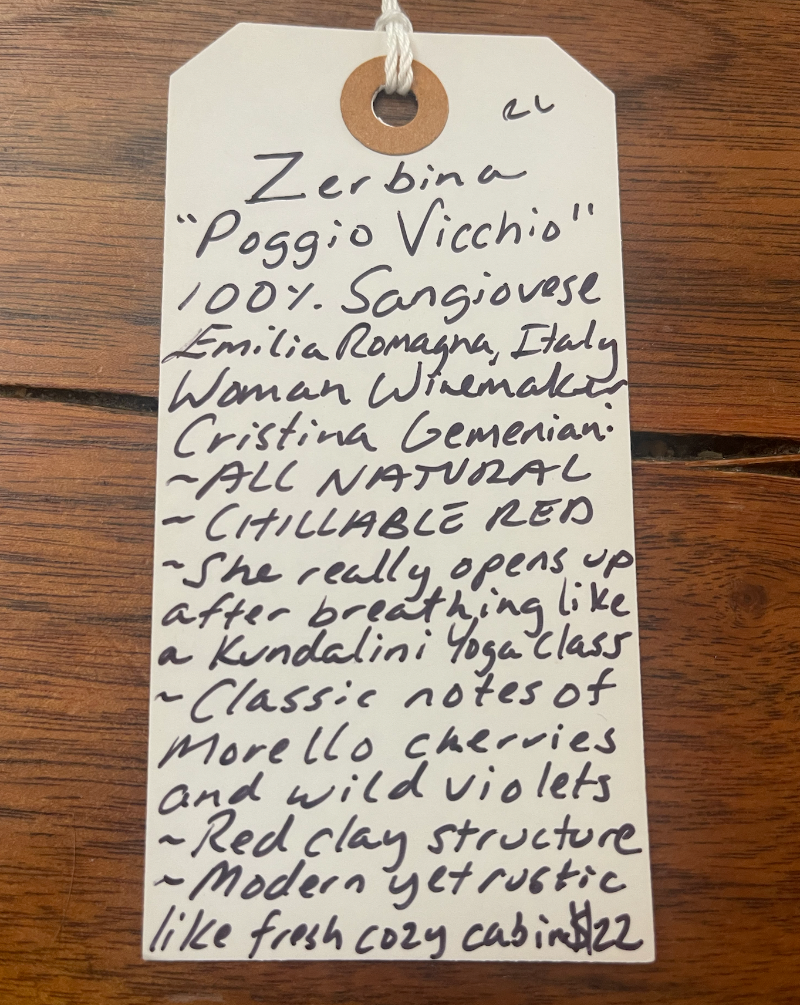 Zerbina
"Poggio Vicchio"
100%. Sangiovese
Emilia Romagna, Italy
Woman Winemaker
Cristina Gemeniani.
~ALL NATURAL
~CHILLABLE RED
~She really opens up
after breathing like
a Kundalini Yoga Class
~Classic notes of
Morello cherries
and wild violets
~Red clay structure
~Modern yet rustic
like fresh cozy cabin $22